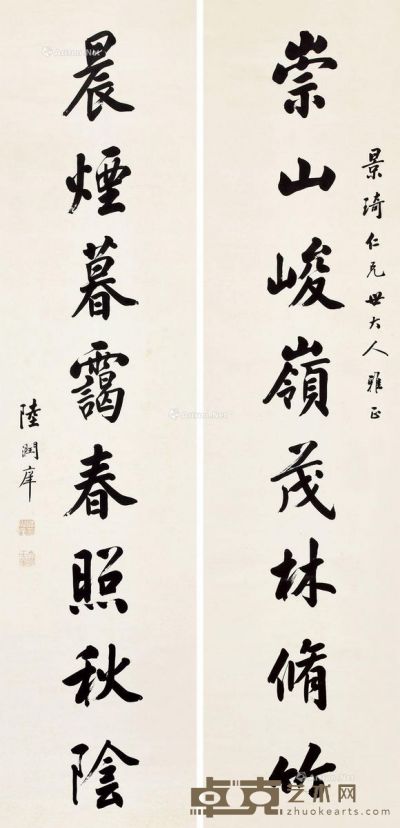 崇山峻嶺茂林脩竹
景琦仁兄世大人雅正
晨煙暮靄春照秋陰
陸潤庠
卓克艺术网
zhuokearts.com